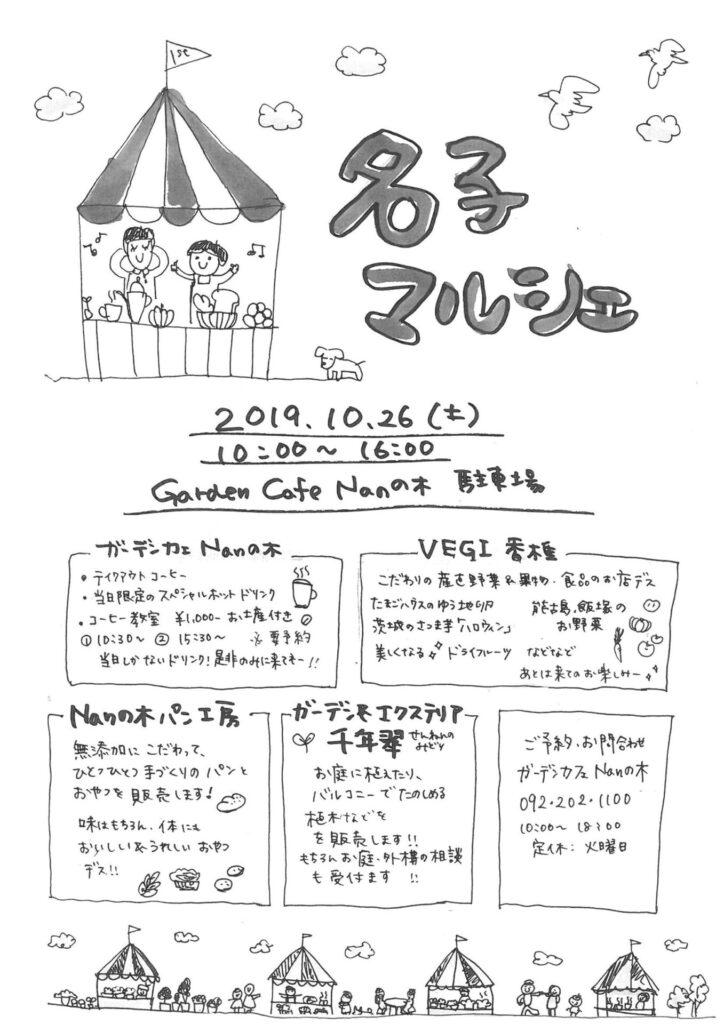 1st
名子
マルシェ
2019.10.26(土)
10:00〜16:00
Garden Cafe Nanの木 駐車場
ガーデンカフェ Nanの木
• テイクアウトコーヒー
• 当日限定のスペシャルホットドリンク
• コーヒー教室 ¥1,000- お土産付き
① 10:30〜 ② 15:30〜 ※要予約
当日しかないドリンク!是非のみに来てネー!!
VEGI 香種
こだわりの産直野菜&果物・食品のお店デス
たまごハウスのゆう地卵
茨城のさつま芋「ハロウィン」
美しくなる ドライフルーツ
飯塚の
お野菜
などなど
あとは来てのお楽しみー
Nanの木パン工房
無添加にこだわって、
ひとつひとつ手づくりのパンと
おやつを販売します!
味はもちろん、体にも
おいしい&うれしい おやつ
デス!!
ガーデン&エクステリア
千年翠 せんねんのみどり
お庭に植えたり、
バルコニーでたのしめる
植木などを
を販売します!!
もちろんお庭・外構の相談
も受付ます !!
ご予約・お問合わせ
ガーデンカフェ Nanの木
092・202・1100
10:00〜18:00
定休: 火曜日